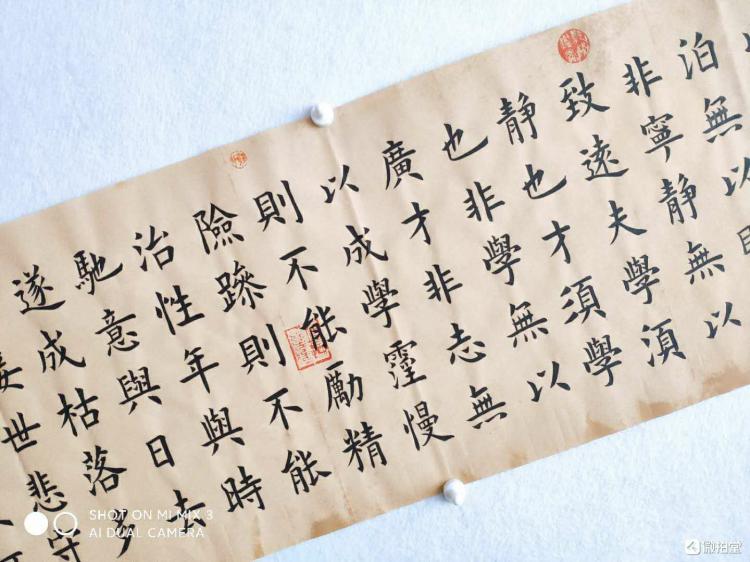 泊無以
非寧静無以
致遠夫學須
静也才須學
也非學無以
廣才非志無
以成學霪慢
則不能勵精
險躁則不能
治性年與時
馳意與日去
遂成枯落多
世悲守
SHOT ON MI MIX 3
AI DUAL CAMERA
微拍堂